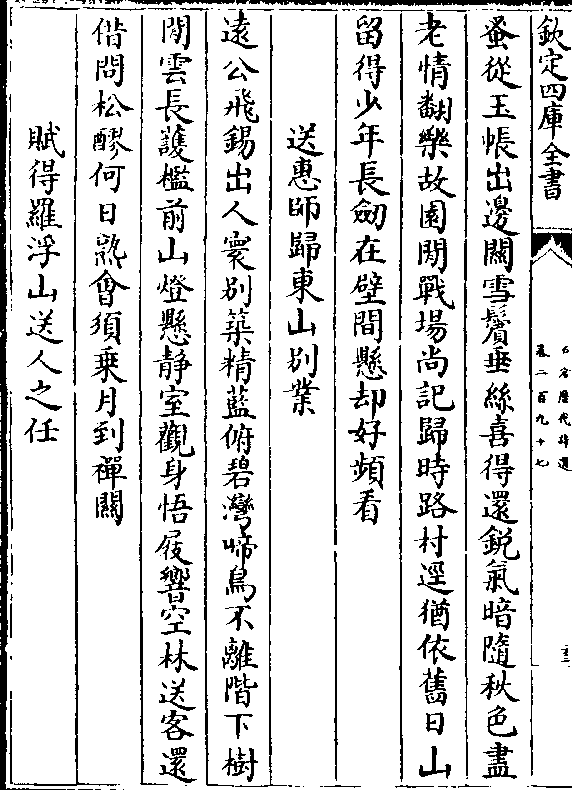 欽定四庫全書
蚤從玉帳出邊關雪鬢垂絲喜得還鋭氣暗隨秋色盡
老情翻樂故園閒戰場尚記歸時路村逕猶依舊日山
留得少年長劒在壁間懸却好頻看
送惠師歸東山别業
遠公飛錫出人寰别築精藍俯碧灣啼鳥不離階下樹
閒雲長護檻前山燈懸静室觀身悟屐響空林送客還
借問松醪何日熟會須乗月到禪關
賦得羅浮山送人之任
石倉歷代詩選
卷二百九十七